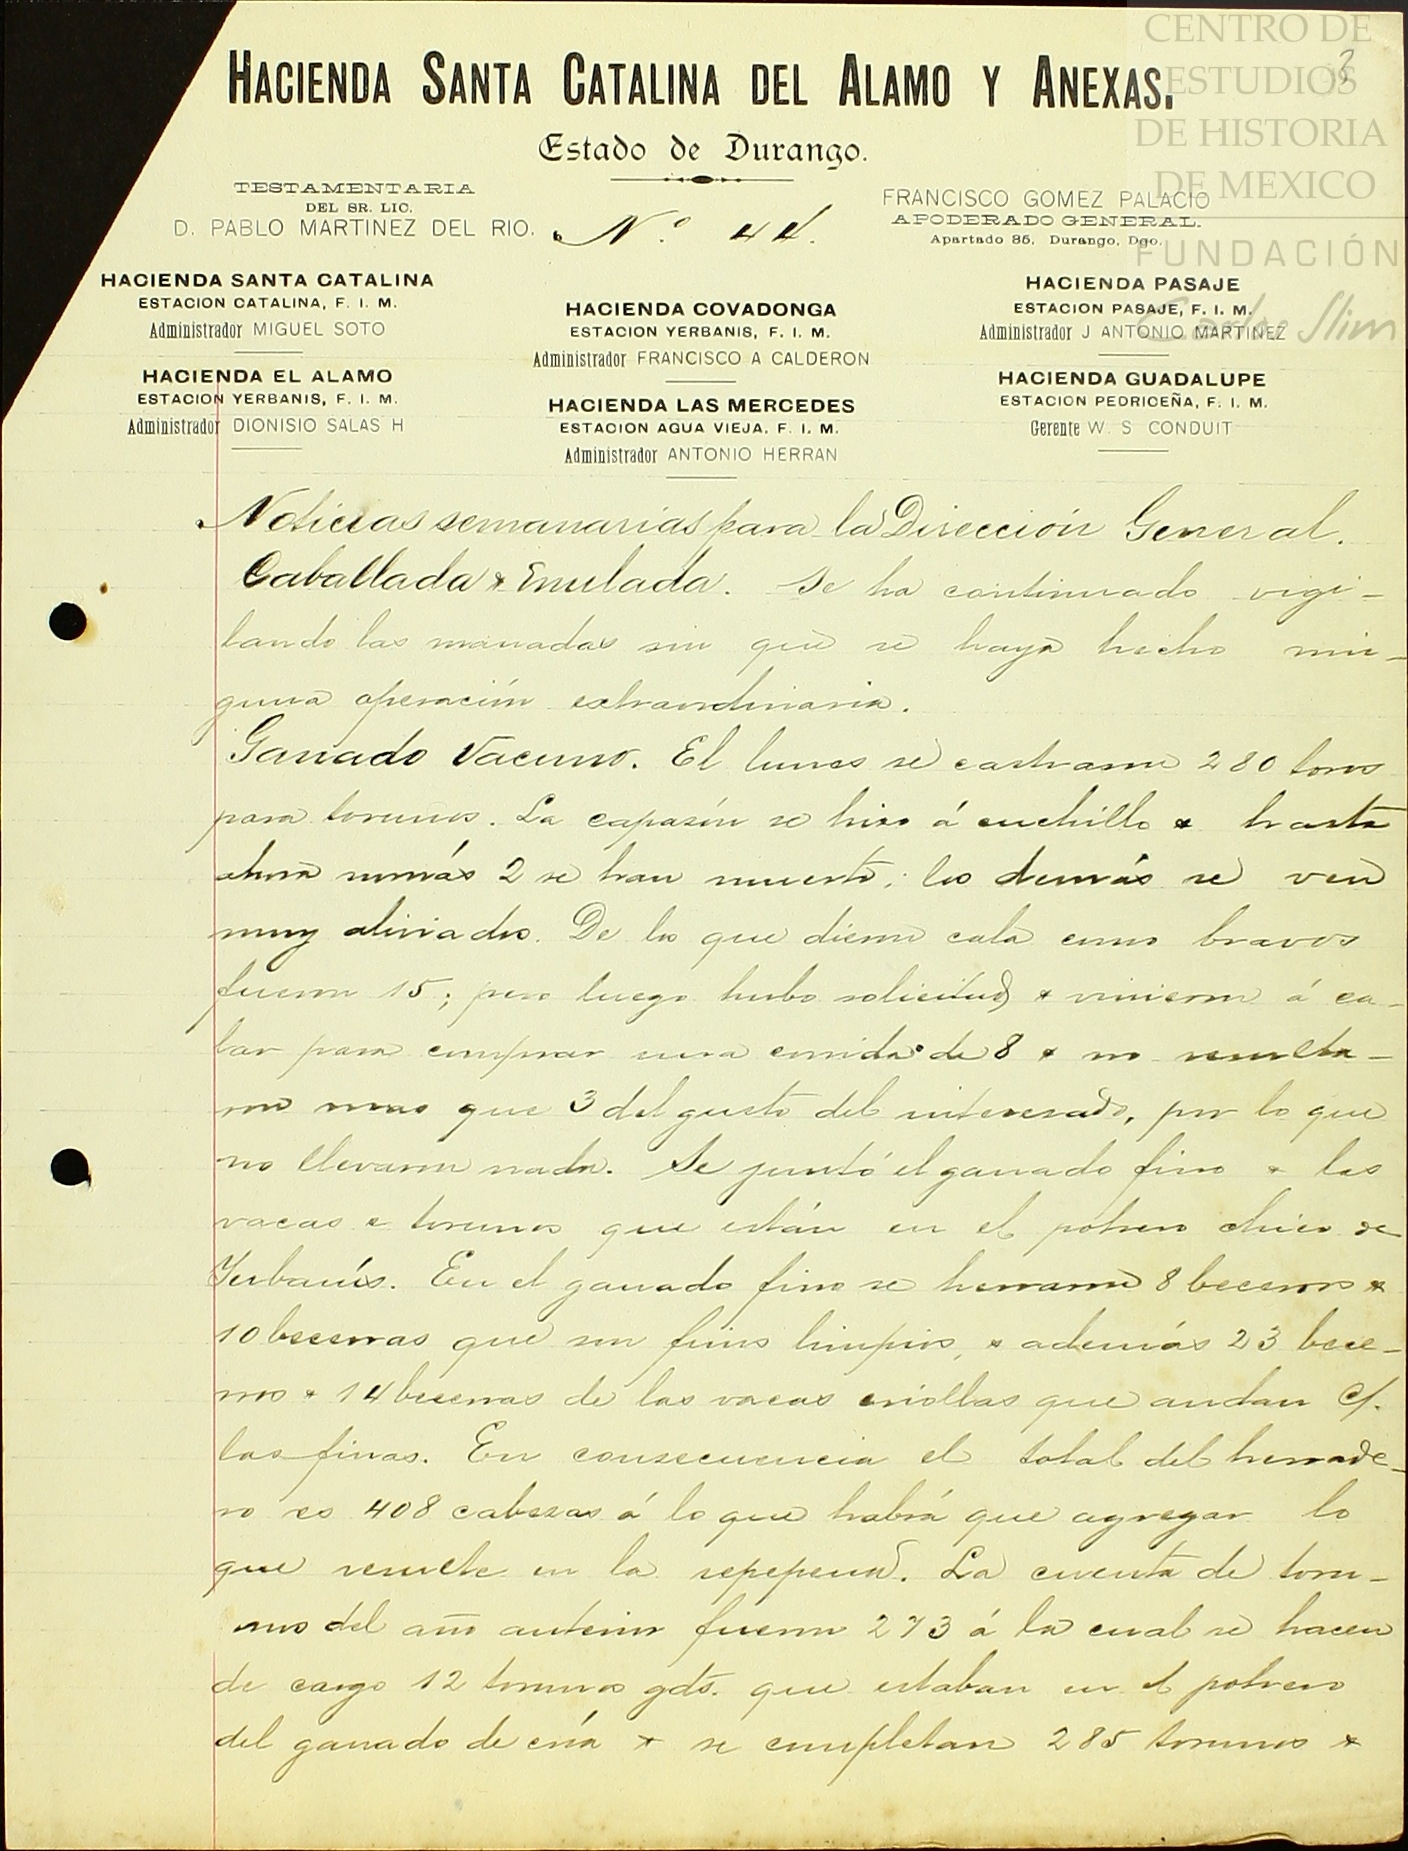 CENTRO DE
ESTUDIOS
DE HISTORIA
DE MEXICO
FUNDACIÓN
Carlos Slim
3
HACIENDA SANTA CATALINA DEL ALAMO Y ANEXAS.
Estado de Durango.
TESTAMENTARIA
DEL SR. LIC.
D. PABLO MARTINEZ DEL RIO.
Nº 44.
FRANCISCO GOMEZ PALACIO
APODERADO GENERAL.
Apartado 85, Durango, Dgo.
HACIENDA SANTA CATALINA
ESTACION CATALINA, F. I. M.
Administrador MIGUEL SOTO
HACIENDA EL ALAMO
ESTACION YERBANIS, F. I. M.
Administrador DIONISIO SALAS H
HACIENDA COVADONGA
ESTACION YERBANIS, F. I. M.
Administrador FRANCISCO A CALDERON
HACIENDA LAS MERCEDES
ESTACION AGUA VIEJA, F. I. M.
Administrador ANTONIO HERRAN
HACIENDA PASAJE
ESTACION PASAJE, F. I. M.
Administrador J ANTONIO MARTINEZ
HACIENDA GUADALUPE
ESTACION PEDRICEÑA, F. I. M.
Gerente W. S CONDUIT
Noticias semanarias para la Dirección General.
Caballada & Mulada. Se ha continuado vigi-
lando las manadas sin que se haya hecho nin-
guna operación extraordinaria.
Ganado Vacuno. El lunes se castraron 280 toros
para torunos. La capazón se hizo á cuchillo & hasta
ahora nomás 2 se han muerto; los demás se ven
muy aliviados. De los que dieron cala como bravos
fueron 15; pero luego hubo solicitud & vinieron á ca-
lar para comprar una corrida de 8 & no resulta-
ron mas que 3 del gusto del interesado, por lo que
no llevaron nada. Se juntó el ganado fino & las
vacas & torunos que están en el potrero chico de
Yerbanís. En el ganado fino se herraron 8 becerros &
10 becerras que son finos limpios, & además 23 bece-
rros & 14 becerras de las vacas criollas que andan c/.
las finas. En consecuencia el total del herrade-
ro es 408 cabezas á lo que habrá que agregar lo
que resulte en la repepena. La cuenta de toru-
nos del año anterior fueron 273 á la cual se hacen
de cargo 12 torunos gdes. que estaban en el potrero
del ganado de cría & se completan 285 torunos &